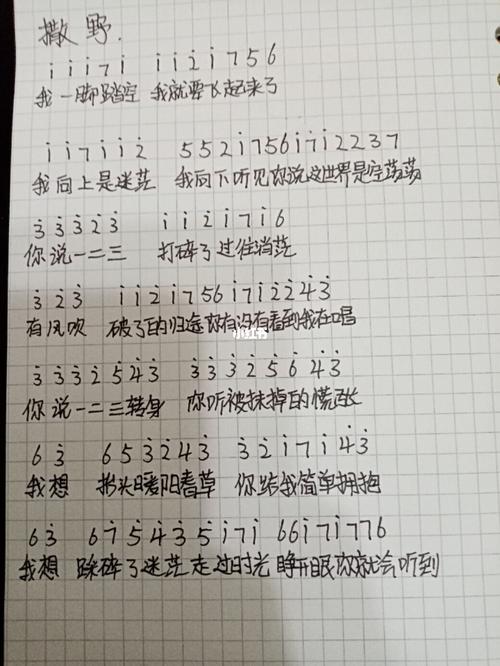 撒野.
i i i 7 i i i 2̇ i 7 5 6
我一脚踏空 我就要飞起来了
i i 7 i i 2̇ 5 5 2 i 7 5 6 i 7 i 2 2 3 7
我向上是迷茫 我向下听见你说这世界是空荡荡
3̇ 3̇ 3̇ 2̇ 3̇ i i 2̇ i 7 i 6
你说一二三 打碎了过往消茫
3̇ 2̇ 3̇ i i 2̇ i 7 5 6 i 7 i 2̇ 2̇ 4̇ 3̇
有风吹 破了的归途你有没有看到我在唱
小红书
3̇ 3̇ 3̇ 2̇ 5̇ 4̇ 3̇ 3̇ 3̇ 3̇ 2̇ 5̇ 6̇ 4̇ 3̇
你说一二三转身 你听被抹掉的慌张
6 3̇ 6 5 3̇ 2̇ 4̇ 3̇ 3̇ 2̇ i 7 i 4̇ 3̇
我想 抬头暖阳春草 你给我简单拥抱
6 3̇ 6 7 5̇ 4̇ 3̇ 5̇ i 7 i 6 6 i 7 i 7 7 6
我想 踩碎了迷茫走过时光 睁开眼你就会听到